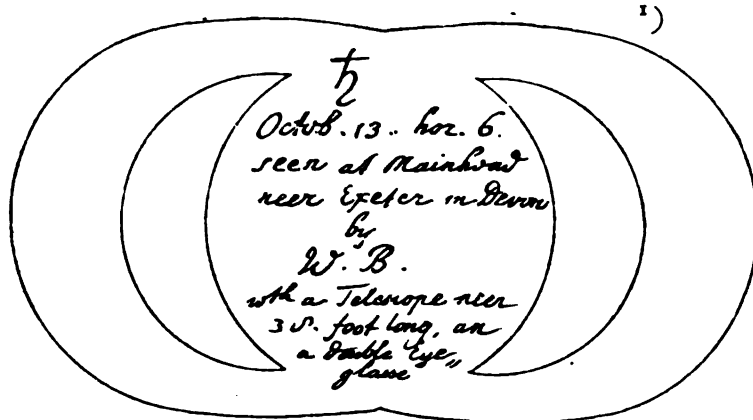 1)
♄
Octob. 13.. hor. 6.
seen at Mainhead
neer Exeter in Devon
by
W. B.
wth a Telescope neer
38. foot long, an
a double Eye„
glasse